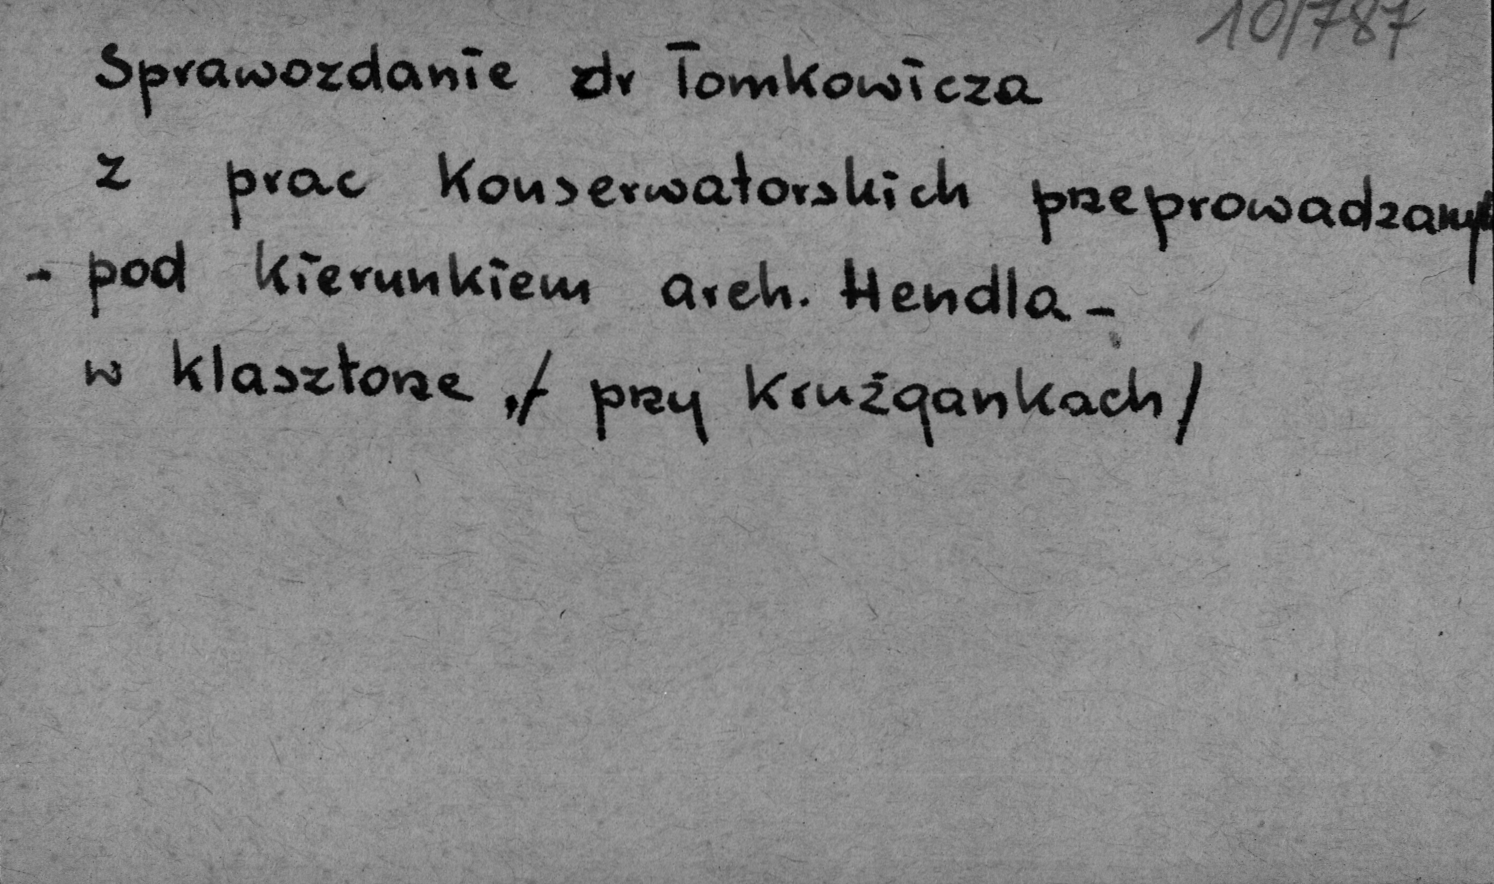 10/787
Sprawozdanie dr Tomkowicza
z prac Konserwatorskich przeprowadzanych
- pod kierunkiem arch. Hendla -
w klasztorze, / przy Krużgankach /